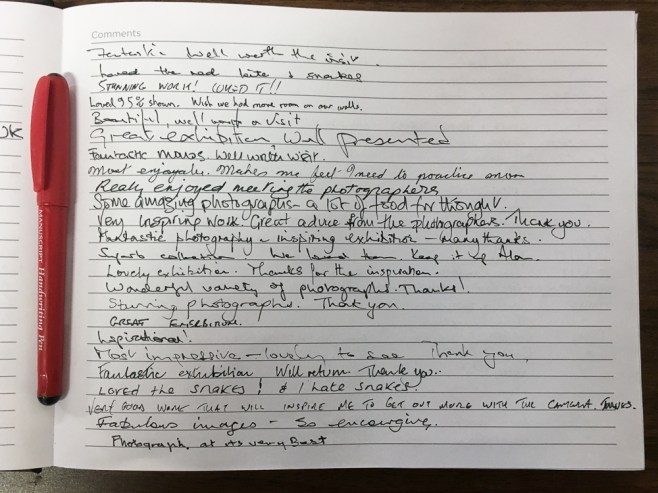 Comments
Fantastic well worth the visit.
Loved the red kite & snakes
STUNNING WORK! LOVED IT!!
Loved 95% shown. Wish we had more room on our walls.
Beautiful, well worth a visit
Great exhibition well presented
Fantastic images. Well worth visit.
Most enjoyable. Makes me feel I need to practice
Really enjoyed meeting the photographers
Some amazing photographs - a lot of food for thought.
Very inspiring work. Great advice from the photographers. Thank you.
Fantastic photography - inspiring exhibition - Many thanks.
Superb collection we loved them. Keep it up Alan.
Lovely exhibition. Thanks for the inspiration.
Wonderful variety of photographs. Thanks!
Stunning photographs. Thank you.
GREAT EXHIBITION.
Inspirational!
Most impressive - lovely to see Thank you.
Fantastic exhibition Will return Thank you.
LOVED the SNAKES! & I hate SNAKES.
VERY GOOD WORK THAT WILL INSPIRE ME TO GET OUT MORE WITH THE CAMERA. THANKS.
Fabulous images - So encouraging.
Photography at its very Best
OK
MANUSCRIPT Handwriting Pen